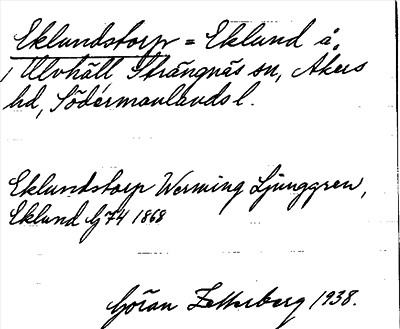 Eklundstorp = Eklund å
/ Ulvhäll Strängnäs sn, Åkers
hd, Södermanlands l.
Eklundstorp Werming Ljunggren,
Eklund GJ 74 1868
Göran Zetterberg 1938.